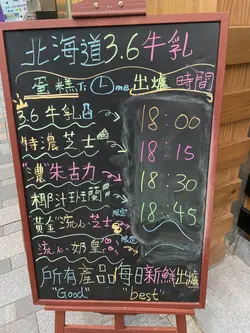 北海道3.6牛乳
蛋糕Time出爐時間
3.6牛乳
18:00
特濃芝士
18:15
"濃"朱古力
18:30
椰汁班蘭
黃金流心芝士 限定
18:45
流心奶皇 限定
所有產品每日新鮮出爐
"Good" "best"